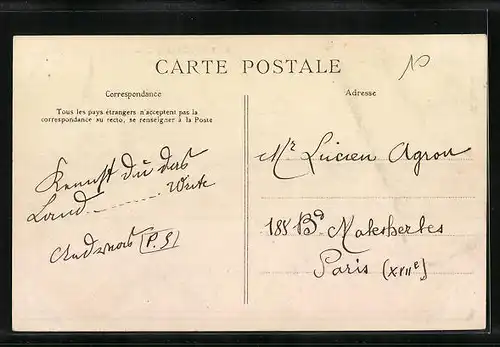 CARTE POSTALE
10
Correspondance
Adresse
Tous les pays étrangers n'acceptent pas la
correspondance au recto, se renseigner à la Poste
Kennst du das
Land..........Write
(P. S)
Mr Lucien Agron
185 Bd Malesherbes
Paris (XVIIe)